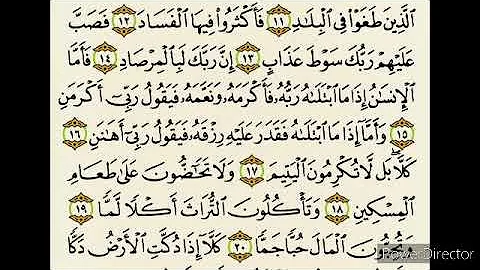 الَّذِينَ طَغَوْا فِي الْبِلَادِ ١١ فَأَكْثَرُوا فِيهَا الْفَسَادَ ١٢ فَصَبَّ
عَلَيْهِمْ رَبُّكَ سَوْطَ عَذَابٍ ١٣ إِنَّ رَبَّكَ لَبِالْمِرْصَادِ ١٤ فَأَمَّا
الْإِنسَانُ إِذَا مَا ابْتَلَاهُ رَبُّهُ فَأَكْرَمَهُ وَنَعَّمَهُ فَيَقُولُ رَبِّي أَكْرَمَنِ
١٥ وَأَمَّا إِذَا مَا ابْتَلَاهُ فَقَدَرَ عَلَيْهِ رِزْقَهُ فَيَقُولُ رَبِّي أَهَانَنِ ١٦
كَلَّا ۖ بَل لَّا تُكْرِمُونَ الْيَتِيمَ ١٧ وَلَا تَحَاضُّونَ عَلَىٰ طَعَامِ
الْمِسْكِينِ ١٨ وَتَأْكُلُونَ التُّرَاثَ أَكْلًا لَّمًّا ١٩
وَتُحِبُّونَ الْمَالَ حُبًّا جَمًّا ٢٠ كَلَّا إِذَا دُكَّتِ الْأَرْضُ دَكًّا
PowerDirector